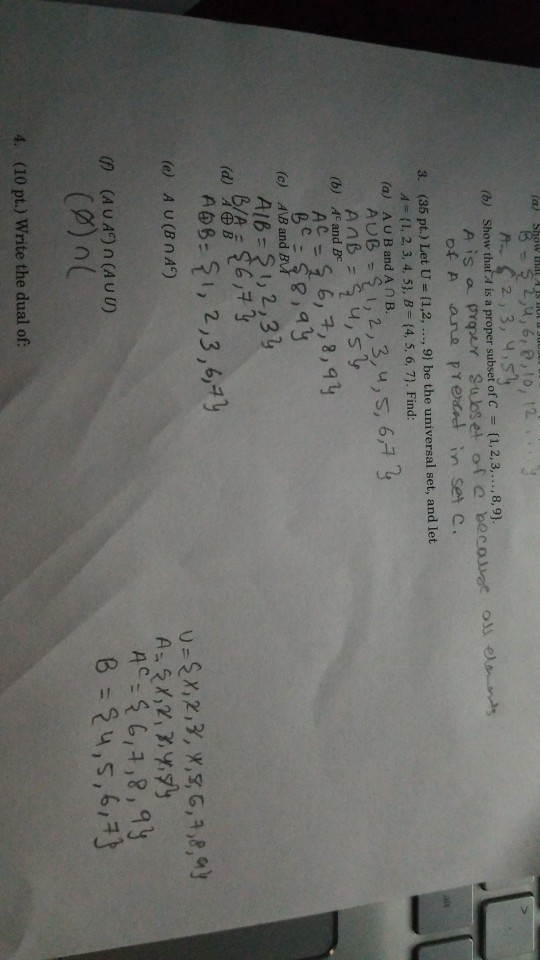 B = {2,4,6,8,10,12...}
A = {2,3,4,5}
(b) Show that A is a proper subset of C = {1,2,3,...,8,9}.
A is a proper subset of C because all elements
of A are present in set C.
3. (35 pt.) Let U = {1,2, ..., 9} be the universal set, and let
A = {1, 2, 3, 4, 5}, B = {4, 5, 6, 7}. Find:
(a) A ∪ B and A ∩ B.
A∪B = {1, 2, 3, 4, 5, 6, 7}
A∩B = {4, 5}
(b) Aᶜ and Bᶜ
Aᶜ = {6, 7, 8, 9}
Bᶜ = {8, 9}
(c) A\B and B\A
A|B = {1, 2, 3}
B/A = {6, 7}
(d) A ⊕ B
A⊕B = {1, 2, 3, 6, 7}
(e) A ∪ (B ∩ Aᶜ)
U = {1, 2, 3, 4, 5, 6, 7, 8, 9}
A = {1, 2, 3, 4, 5}
Aᶜ = {6, 7, 8, 9}
B = {4, 5, 6, 7}
(f) (A ∪ Aᶜ) ∩ (A ∪ U)
(Ø) ∩ (
4. (10 pt.) Write the dual of: